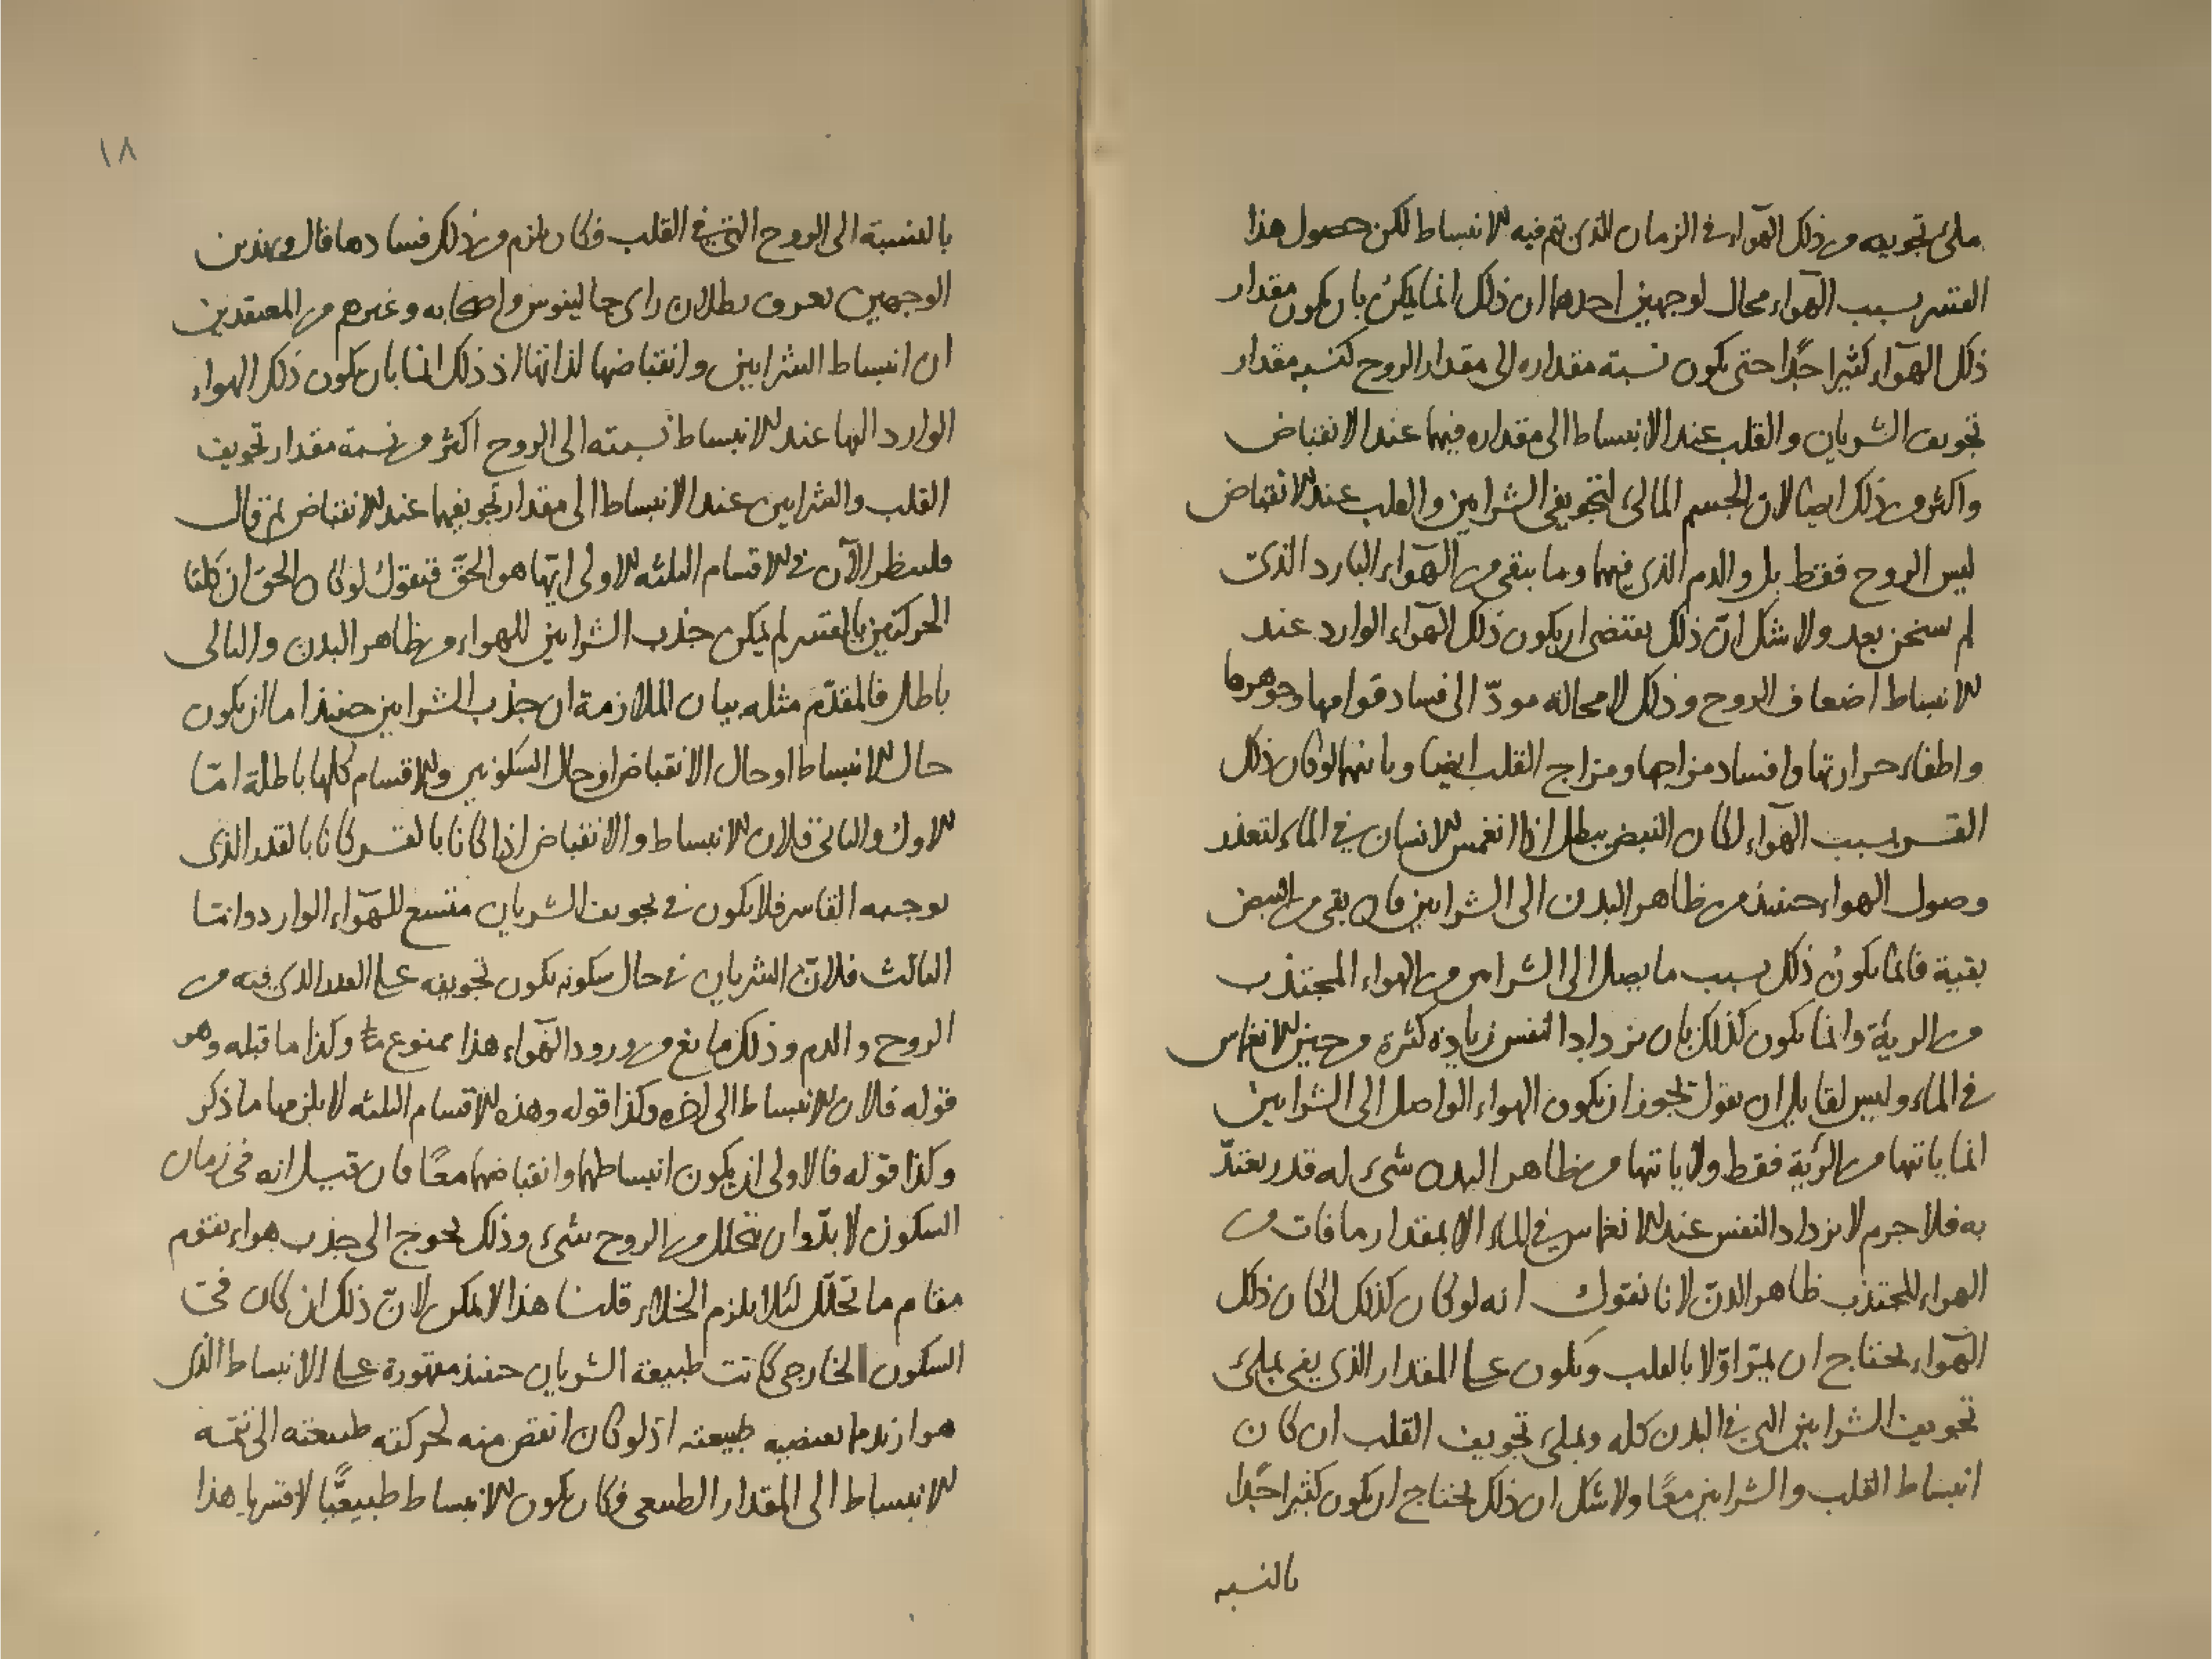 ملئ تجويفه من ذلك الهوآء في الزمان الذي تم فيه الانبساط لكن حصول هذا
القسر بسبب الهوآء محال لوجهين احدهما ان ذلك انما يمكن بان يكون مقدار
ذلك الهوآء كثيرا جدا حتى يكون نسبة مقداره الى مقدار الروح كنسبه مقدار
تجويف الشريان والقلب عند الانبساط الى مقداره فيهما عند الانقباض
واكثر من ذلك ايضا لان الجسم المالئ لتجويفي الشرايين والقلب عند الانقباض
ليس الروح فقط بل والدم الذي فيهما وما يبقى من الهوآء البارد الذي
لم يسخن بعد ولا شك ان ذلك يقتضي ان يكون ذلك الهوآء الوارد عند
الانبساط اضعاف الروح وذلك لا محالة مودّ الى فساد قوامها وجوهرها
واطفاء حرارتها وافساد مزاجها ومزاج القلب ايضا وثانيهما لو كان ذلك
القسر بسبب الهوآء لكان النبض يبطل اذا انغمس الانسان في الماء لتعذر
وصول الهواء حينئذ من ظاهر البدن الى الشرايين فان بقي من النبض
بقية فانما يكون ذلك بسبب ما يصل الى الشرايين من الهواء المجتذب
من الرية وانما يكون كذلك بان يزداد التنفس زيادة كثرة من حين الانغماس
في الماء وليس لقايل ان يقول يجوز ان يكون الهواء الواصل الى الشرايين
انما ياتيها من الرئة فقط ولا ياتيها من ظاهر البدن شيء له قدر يعتدّ
به فلا جرم لا يزداد التنفس عند الانغماس في الماء الا بمقدار ما فات من
الهواء المجتذب ظاهر البدن لانا نقول انه لو كان كذلك لكان ذلك
الهوآء يحتاج ان يمر اوّلا بالقلب ويكون على المقدار الذي يفي بملئ
تجويف الشرايين التي في البدن كله وبملئ تجويف القلب ان كان
انبساط القلب والشرايين معًا ولا شك ان ذلك يحتاج ان يكون كثيرا جدًا
بالنسبه
١٨
بالنسبة الى الروح التي في القلب فكان يلزم من ذلك فسادها قال وبهذين
الوجهين يعرف بطلان راى جالينوس واصحابه وغيرهم من المعتقدين
ان انبساط الشرايين وانقباضها لذاتها اذ ذلك انما بان يكون ذلك الهواء
الوارد اليها عند الانبساط نسبته الى الروح اكثر من نسبة مقدار تجويف
القلب والشرايين عند الانبساط الى مقدار تجويفهما عند الانقباض ثم قال
فلينظر الآن في الاقسام الثلثه الاولى ايّها هو الحقّ فنقول لو كان الحق ان كلتا
الحركتين بالقسر لم يكن جذب الشرايين للهواء من ظاهر البدن والتالي
باطل فالمقدّم مثله بيان الملازمة ان جذب الشرايين حينئذ اما ان يكون
حال الانبساط او حال الانقباض او حال السكونين والاقسام كلها باطلة امّا
الاول والثاني فلان الانبساط والانقباض اذا كانا بالقسر كانا بالقدر الذي
يوجبه القاسر فلا يكون في تجويف الشريان متسع للهوآء الوارد وامّا
الثالث فلانّ الشريان في حال سكونه يكون تجويفه على القدر الذي فيه من
الروح والدم وذلك مانع من ورود الهوآء هذا ممنوع وكذا ما قبله وهو
قوله فلان الانبساط الى اخره وكذا قوله وهذه الاقسام الثلثه لا يلزمها ما ذكر
وكذا قوله فالاولى ان يكون انبساطهما وانقباضهما معًا فان قيل انه في زمان
السكون لا بدّ وان يتحلل من الروح شيء وذلك يحوج الى جذب هواء يقوم
مقام ما تحلّل لئلا يلزم الخلاء قلنا هذا لا يمكن لانّ ذلك ان كان في
السكون الخارجي كانت طبيعة الشريان حينئذ مقهورة على الانبساط الذي
هو ازيد مما يقتضيه طبيعته اذ لو كان انقص منه لحركته طبيعته الى تتمّه
الانبساط الى المقدار الطبيعي فكان يكون الانبساط طبيعيًّا لا قسريا هذا